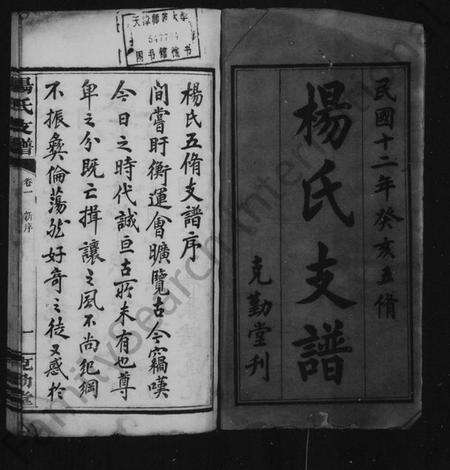 民國十二年癸亥五脩
楊氏支譜
克勤堂刊
楊氏五脩支譜序
間嘗盱衡運會曠覽古今竊嘆
今日之時代誠亘古所未有也尊
卑之分既亡揖讓之風不尚紀綱
不振彜倫蕩然好奇之徒又惑於
楊氏支譜
卷一 新序
一
克勤堂
天津師範大學
图书館藏书
FamilySearch International